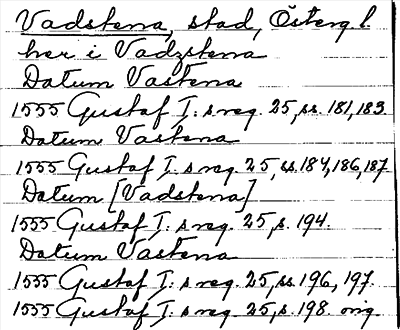 Vadstena, stad, Österg. l.
her i Vadzstena
Datum Vastena
1555 Gustaf I:s reg. 25, ss. 181, 183.
Datum Vastena
1555 Gustaf I:s reg. 25, ss. 184, 186, 187
Datum [Vadstena]
1555 Gustaf I:s reg. 25, s. 194.
Datum Vastena
1555 Gustaf I:s reg. 25, ss. 196, 197.
1555 Gustaf I:s reg. 25, s. 198. orig.